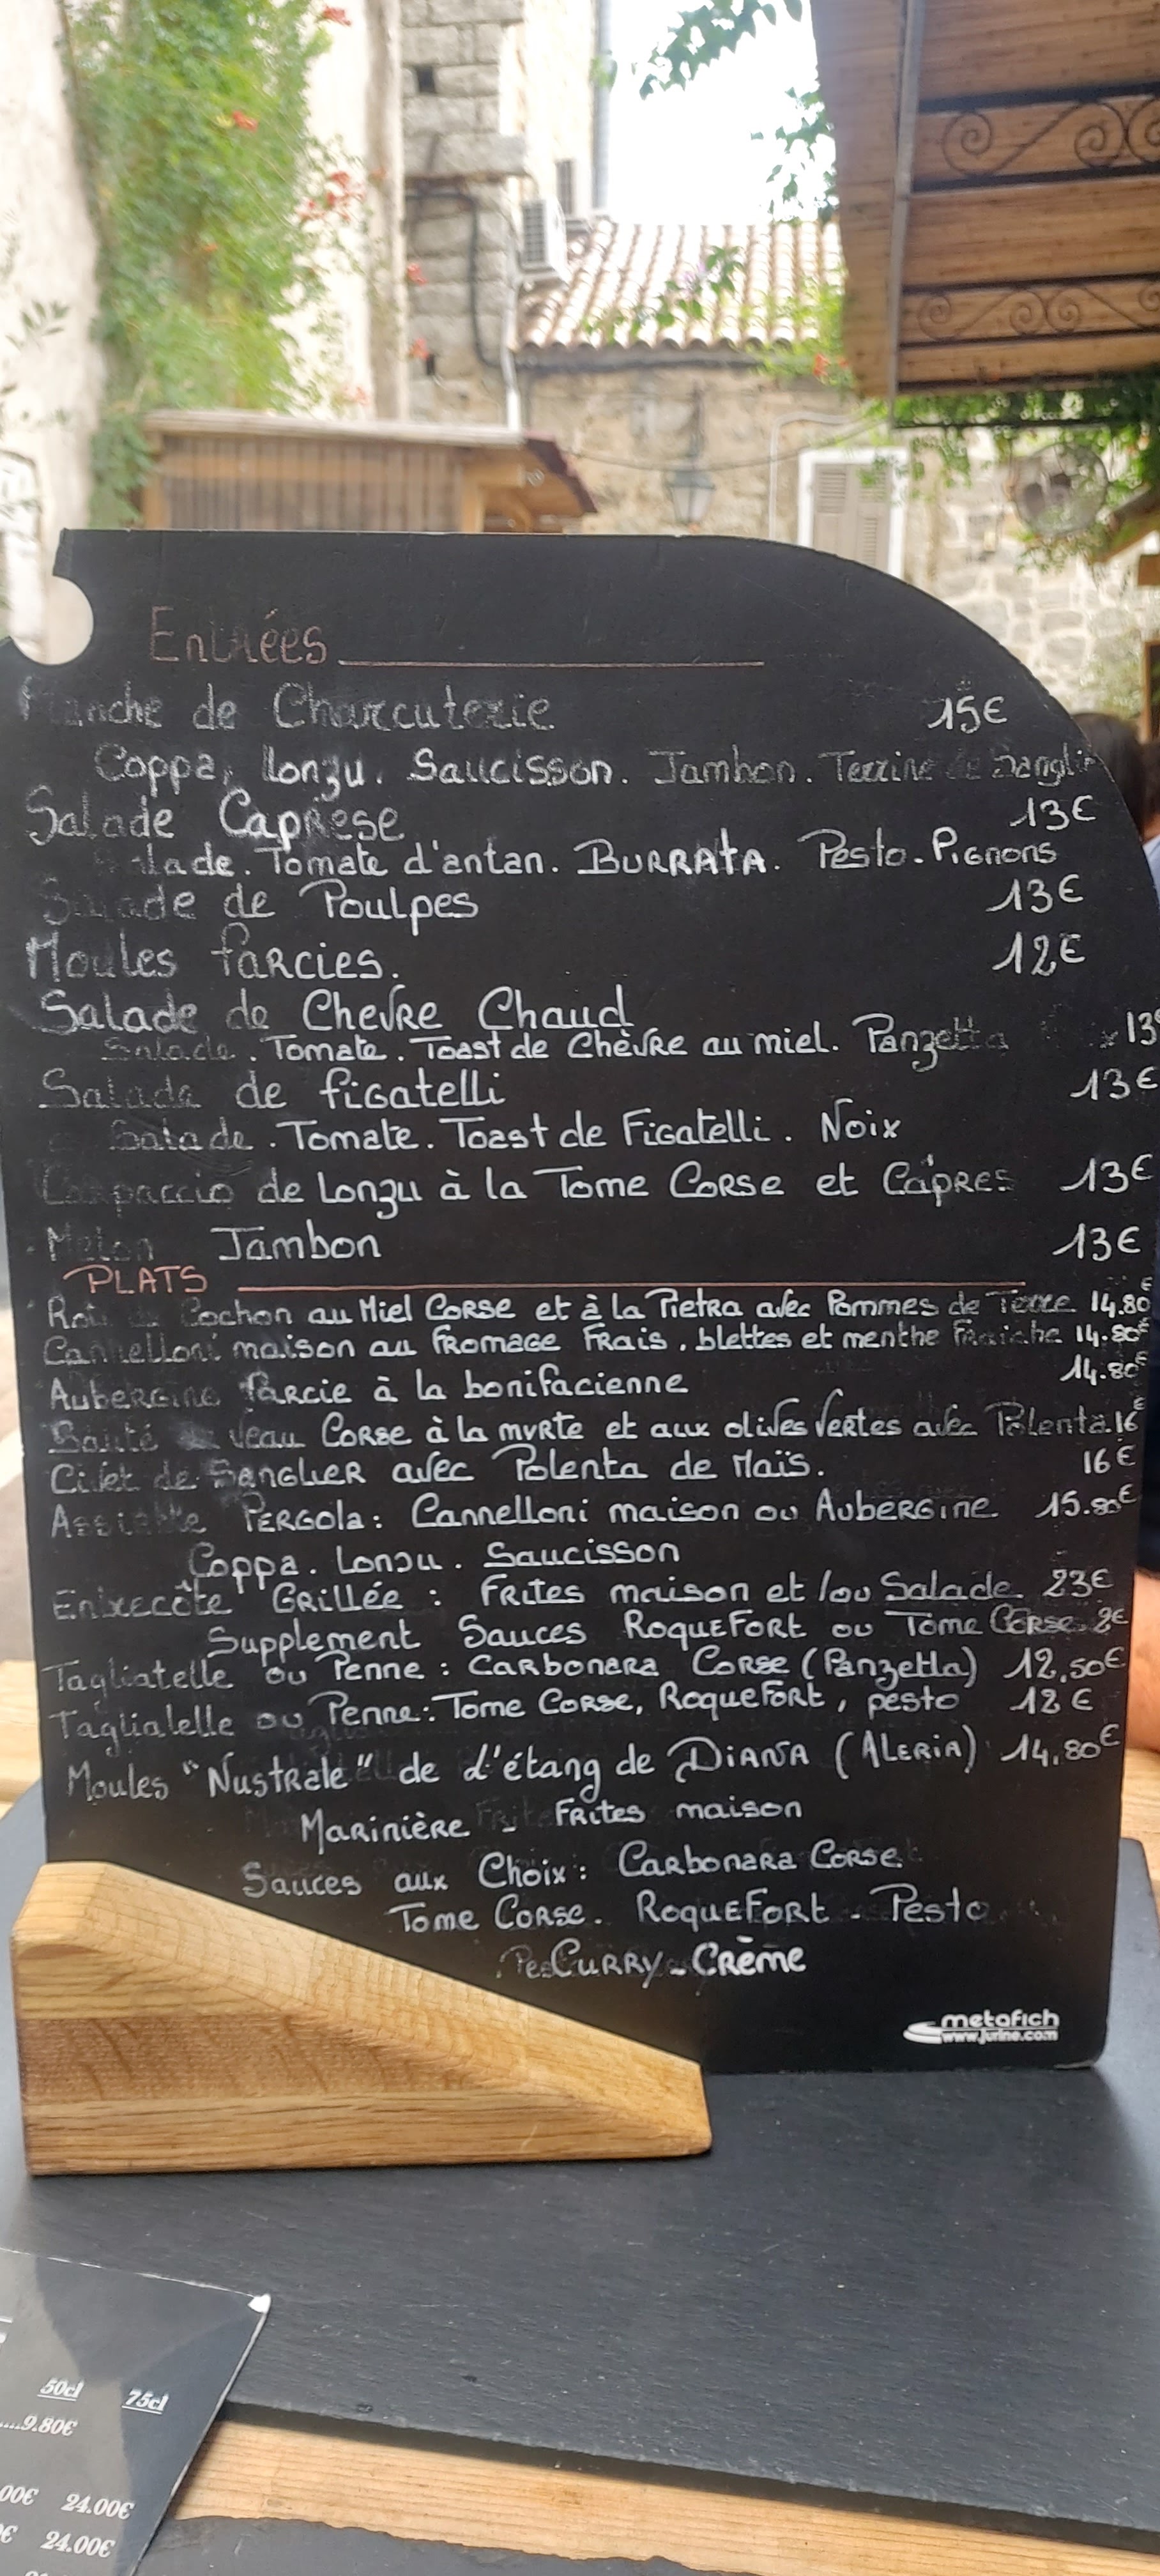 Entrées
Planche de Charcuterie 15€
Coppa. Lonzu. Saucisson. Jambon. Terrine de Sanglier
Salade Caprese 13€
Salade. Tomate d'antan. BURRATA. Pesto. Pignons
Salade de Poulpes 13€
Moules farcies. 12€
Salade de Chevre Chaud
Salade. Tomate. Toast de Chèvre au miel. Panzetta 13€
Salade de figatelli 13€
Salade. Tomate. Toast de Figatelli. Noix
Carpaccio de Lonzu à la Tome Corse et Câpres 13€
Melon Jambon 13€
PLATS
Cochon au Miel Corse et à la Pietra avec Pommes de Terre 14,80€
Cannelloni maison au Fromage Frais, blettes et menthe Fraiche 14.80€
Aubergine farcie à la bonifacienne 14.80€
Sauté veau Corse à la myrte et aux olives Vertes avec Polenta. 16€
Civet de SANGLIER avec Polenta de Maïs. 16€
Assiette PERGOLA: Cannelloni maison ou Aubergine 15.80€
Coppa. Lonzu. Saucisson
Entrecôte Grillée : Frites maison et/ou Salade 23€
Supplement Sauces Roquefort ou Tome Corse 2€
Tagliatelle ou Penne : Carbonara Corse (Panzetta) 12,50€
Tagliatelle ou Penne: Tome Corse, Roquefort, pesto 12€
Moules "Nustrale" de d'étang de DIANA (ALERIA) 14,80€
Marinière - Frites maison
Sauces aux Choix: Carbonara Corse
Tome Corse. Roquefort - Pesto
Curry - Crème
metafich
www.jurine.com
50cl 75cl
....9.80€
00€ 24.00€
€ 24.00€